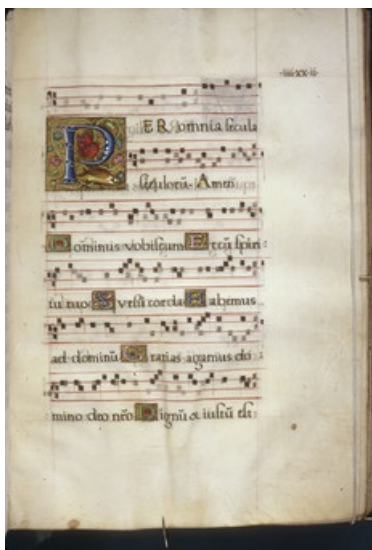 ·iiii·xx·ii·
PER omnia secula
seculorū. Amen
Dominus vobiscum Et cū spiri
tu tuo Sursū corda Habemus
ad dominū Gratias agamus do
mino deo nr̄o Dignū & iustū est: